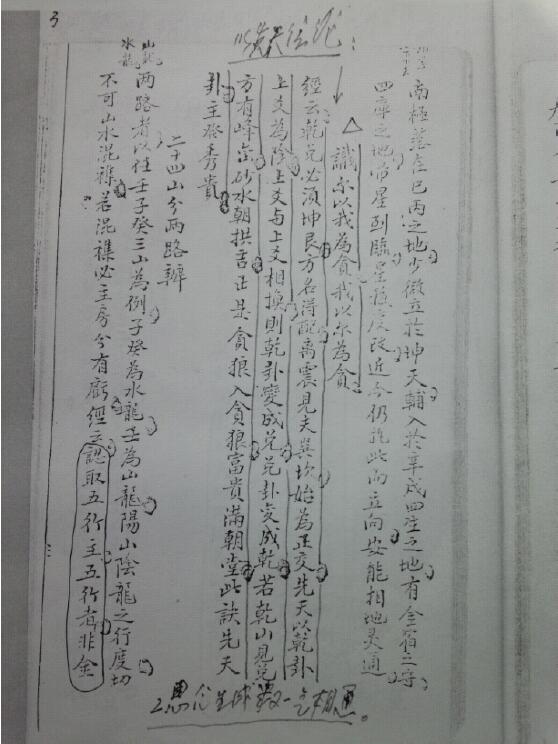 3
南極蓋在巳丙之地少微立於坤天輔入於辛戌四生之地有金宿之守
四庫之地帝星到臨星移度改近今仍執此而立向安能相地灵通
識尔以我為貪我以尔為貪
經云乾兑必須坤艮方名得配离震見夫巽坎始為正交先天以乾卦
上爻為陰上爻与上爻相換則乾卦變成兑兑卦变成乾若乾山見兑
方有峰峦砂水朝拱吉正是貪狼入貪狼富貴滿朝堂此訣先天
卦主發秀貴
二十四山分兩路辨
山龍
水龍
兩路者以往壬子癸三山為例子癸為水龍壬為山龍陽山陰龍之行度切
不可山水混襍若混襍必主房分有虧經云認取五行主五行者非金